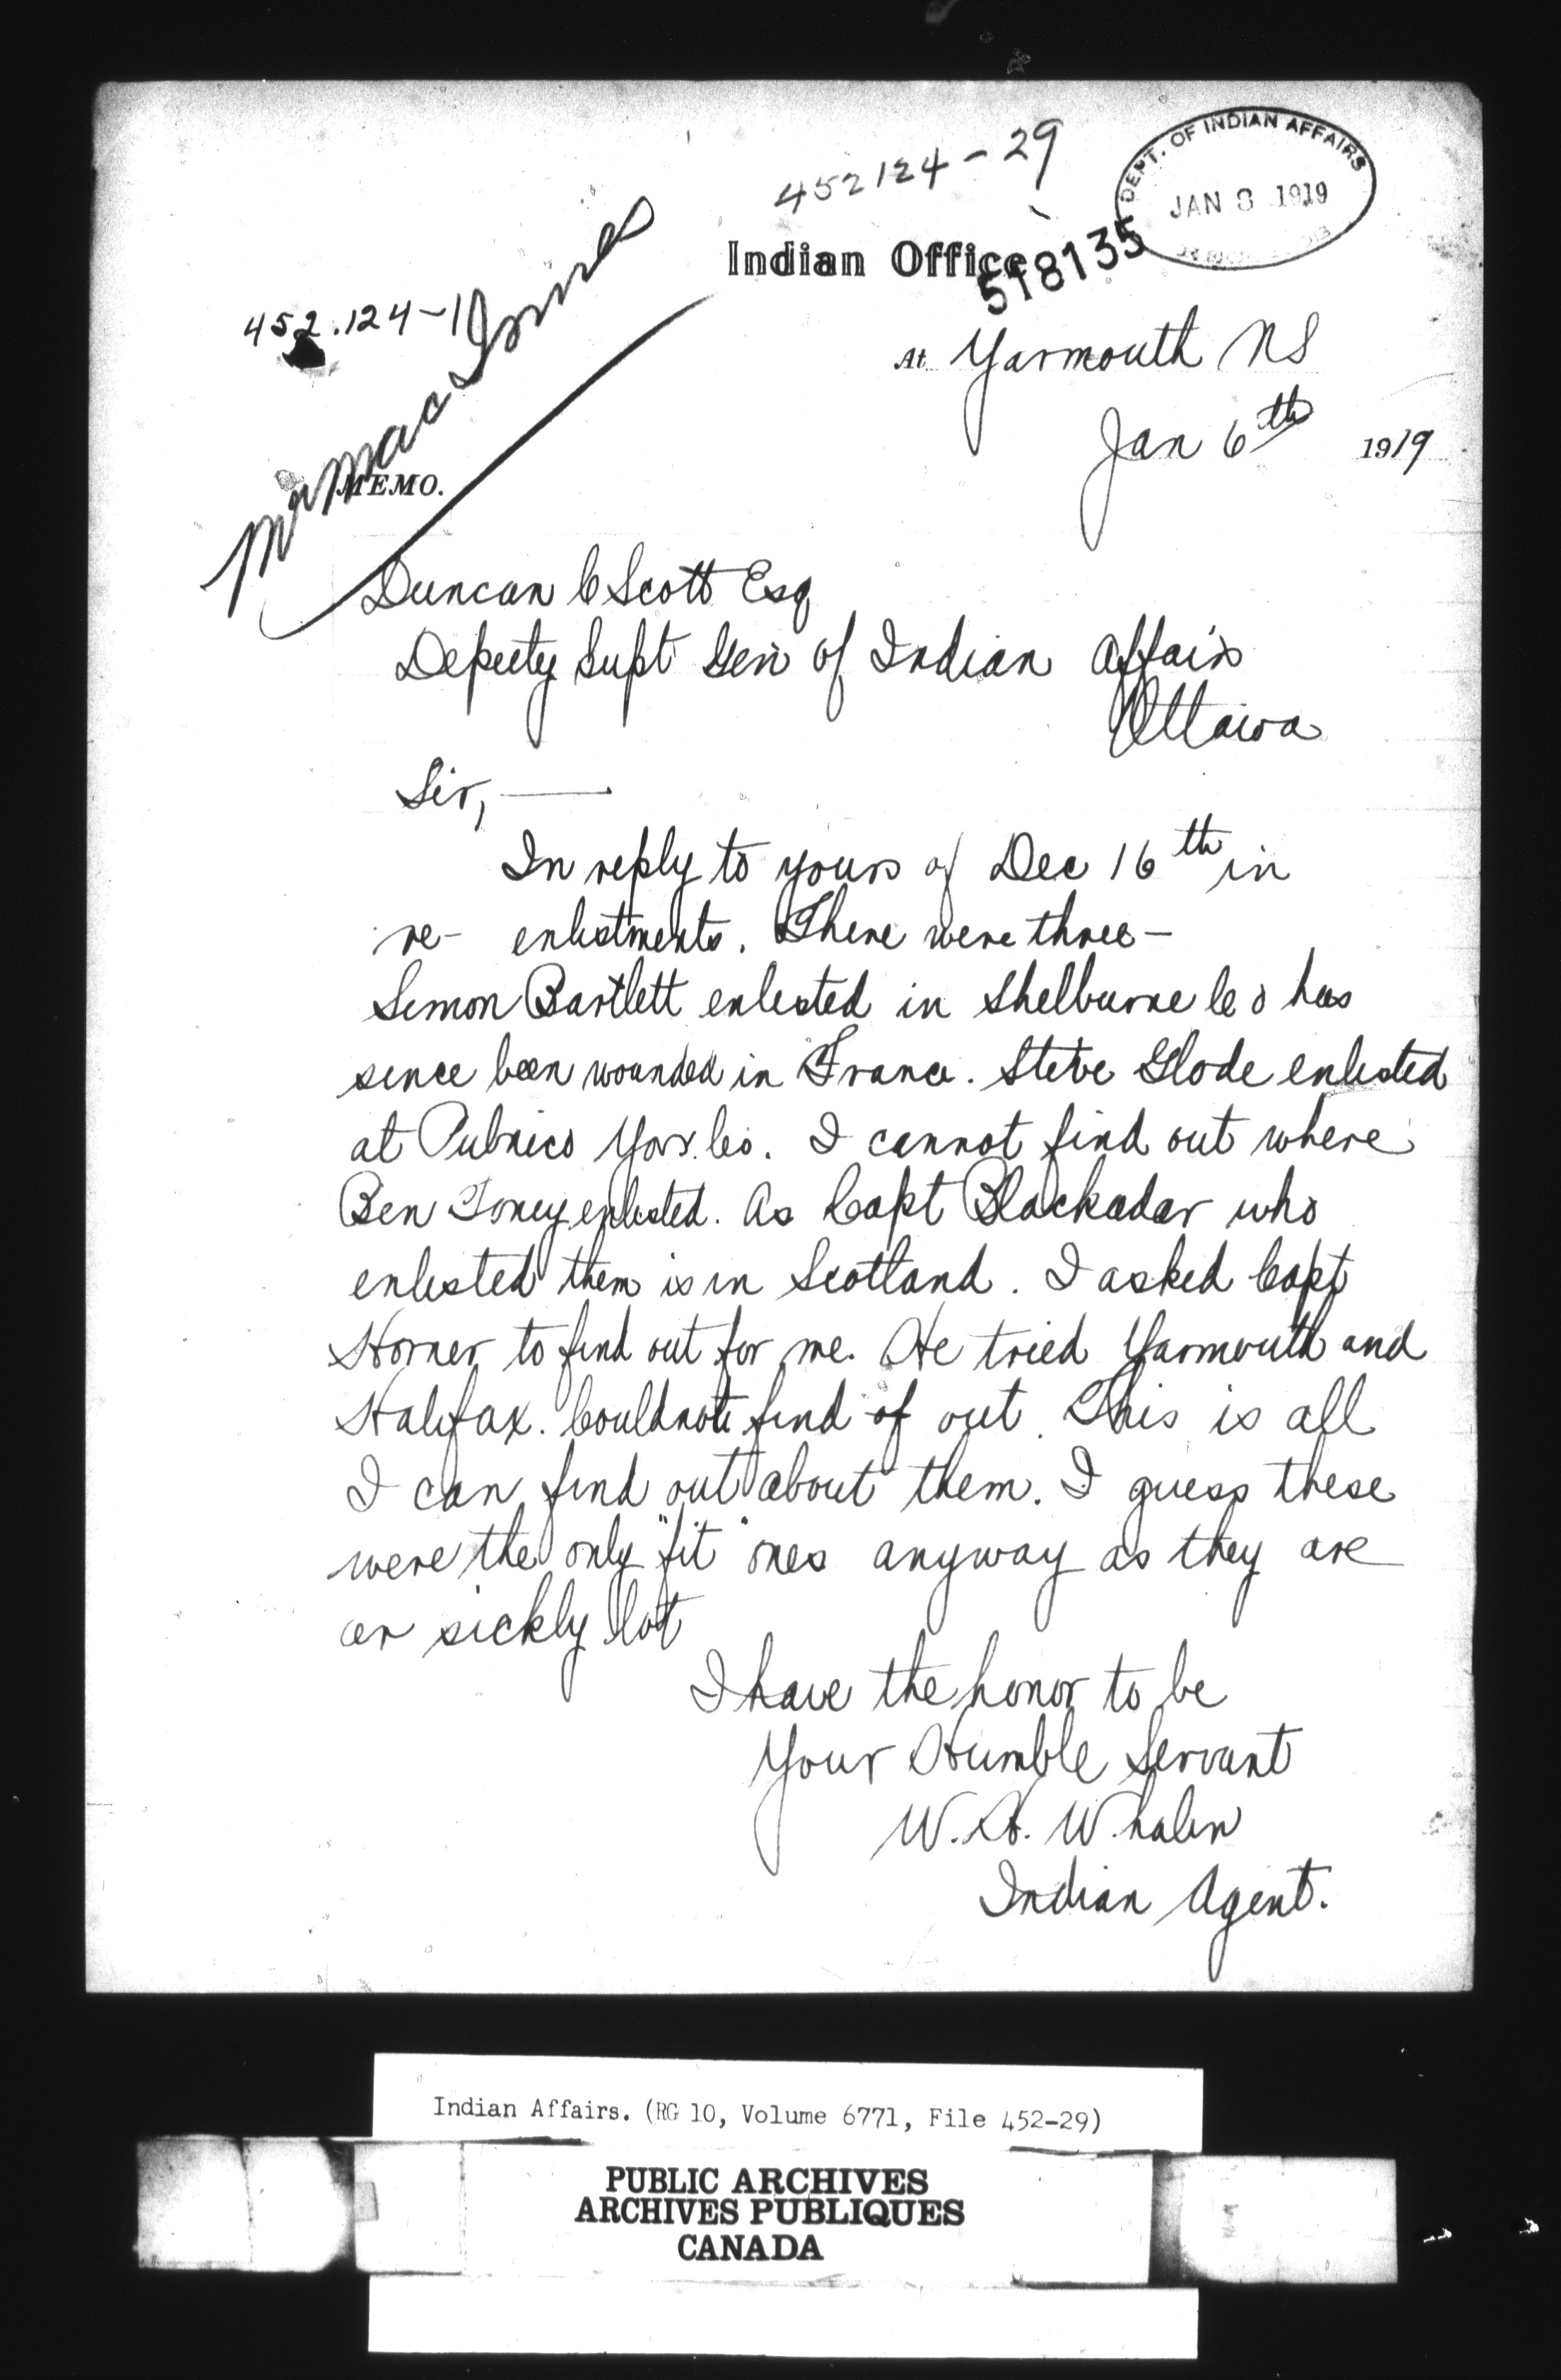 452124-29
DEPT. OF INDIAN AFFAIRS
JAN 8 1919
Indian Office
518135
452.124-1
Mr MacInnes
At Yarmouth NS
Jan 6th 1919
MEMO.
Duncan C Scott Esq
Deputy Supt Gen of Indian Affairs
Ottawa
Sir,
In reply to yours of Dec 16th in
re- enlistments. There were three-
Simon Bartlett enlisted in Shelburne Co has
since been wounded in France. Steve Glode enlisted
at Pubnico Yar. Co. I cannot find out where
Ben Toney enlisted. As Capt Blackadar who
enlisted them is in Scotland. I asked Capt
Horner to find out for me. He tried Yarmouth and
Halifax. Could not find of out. This is all
I can find out about them. I guess these
were the only "fit" ones anyway as they are
a sickly lot
I have the honor to be
Your Humble Servant
W. H. Whalen
Indian Agent.
Indian Affairs. (RG 10, Volume 6771, File 452-29)
PUBLIC ARCHIVES
ARCHIVES PUBLIQUES
CANADA